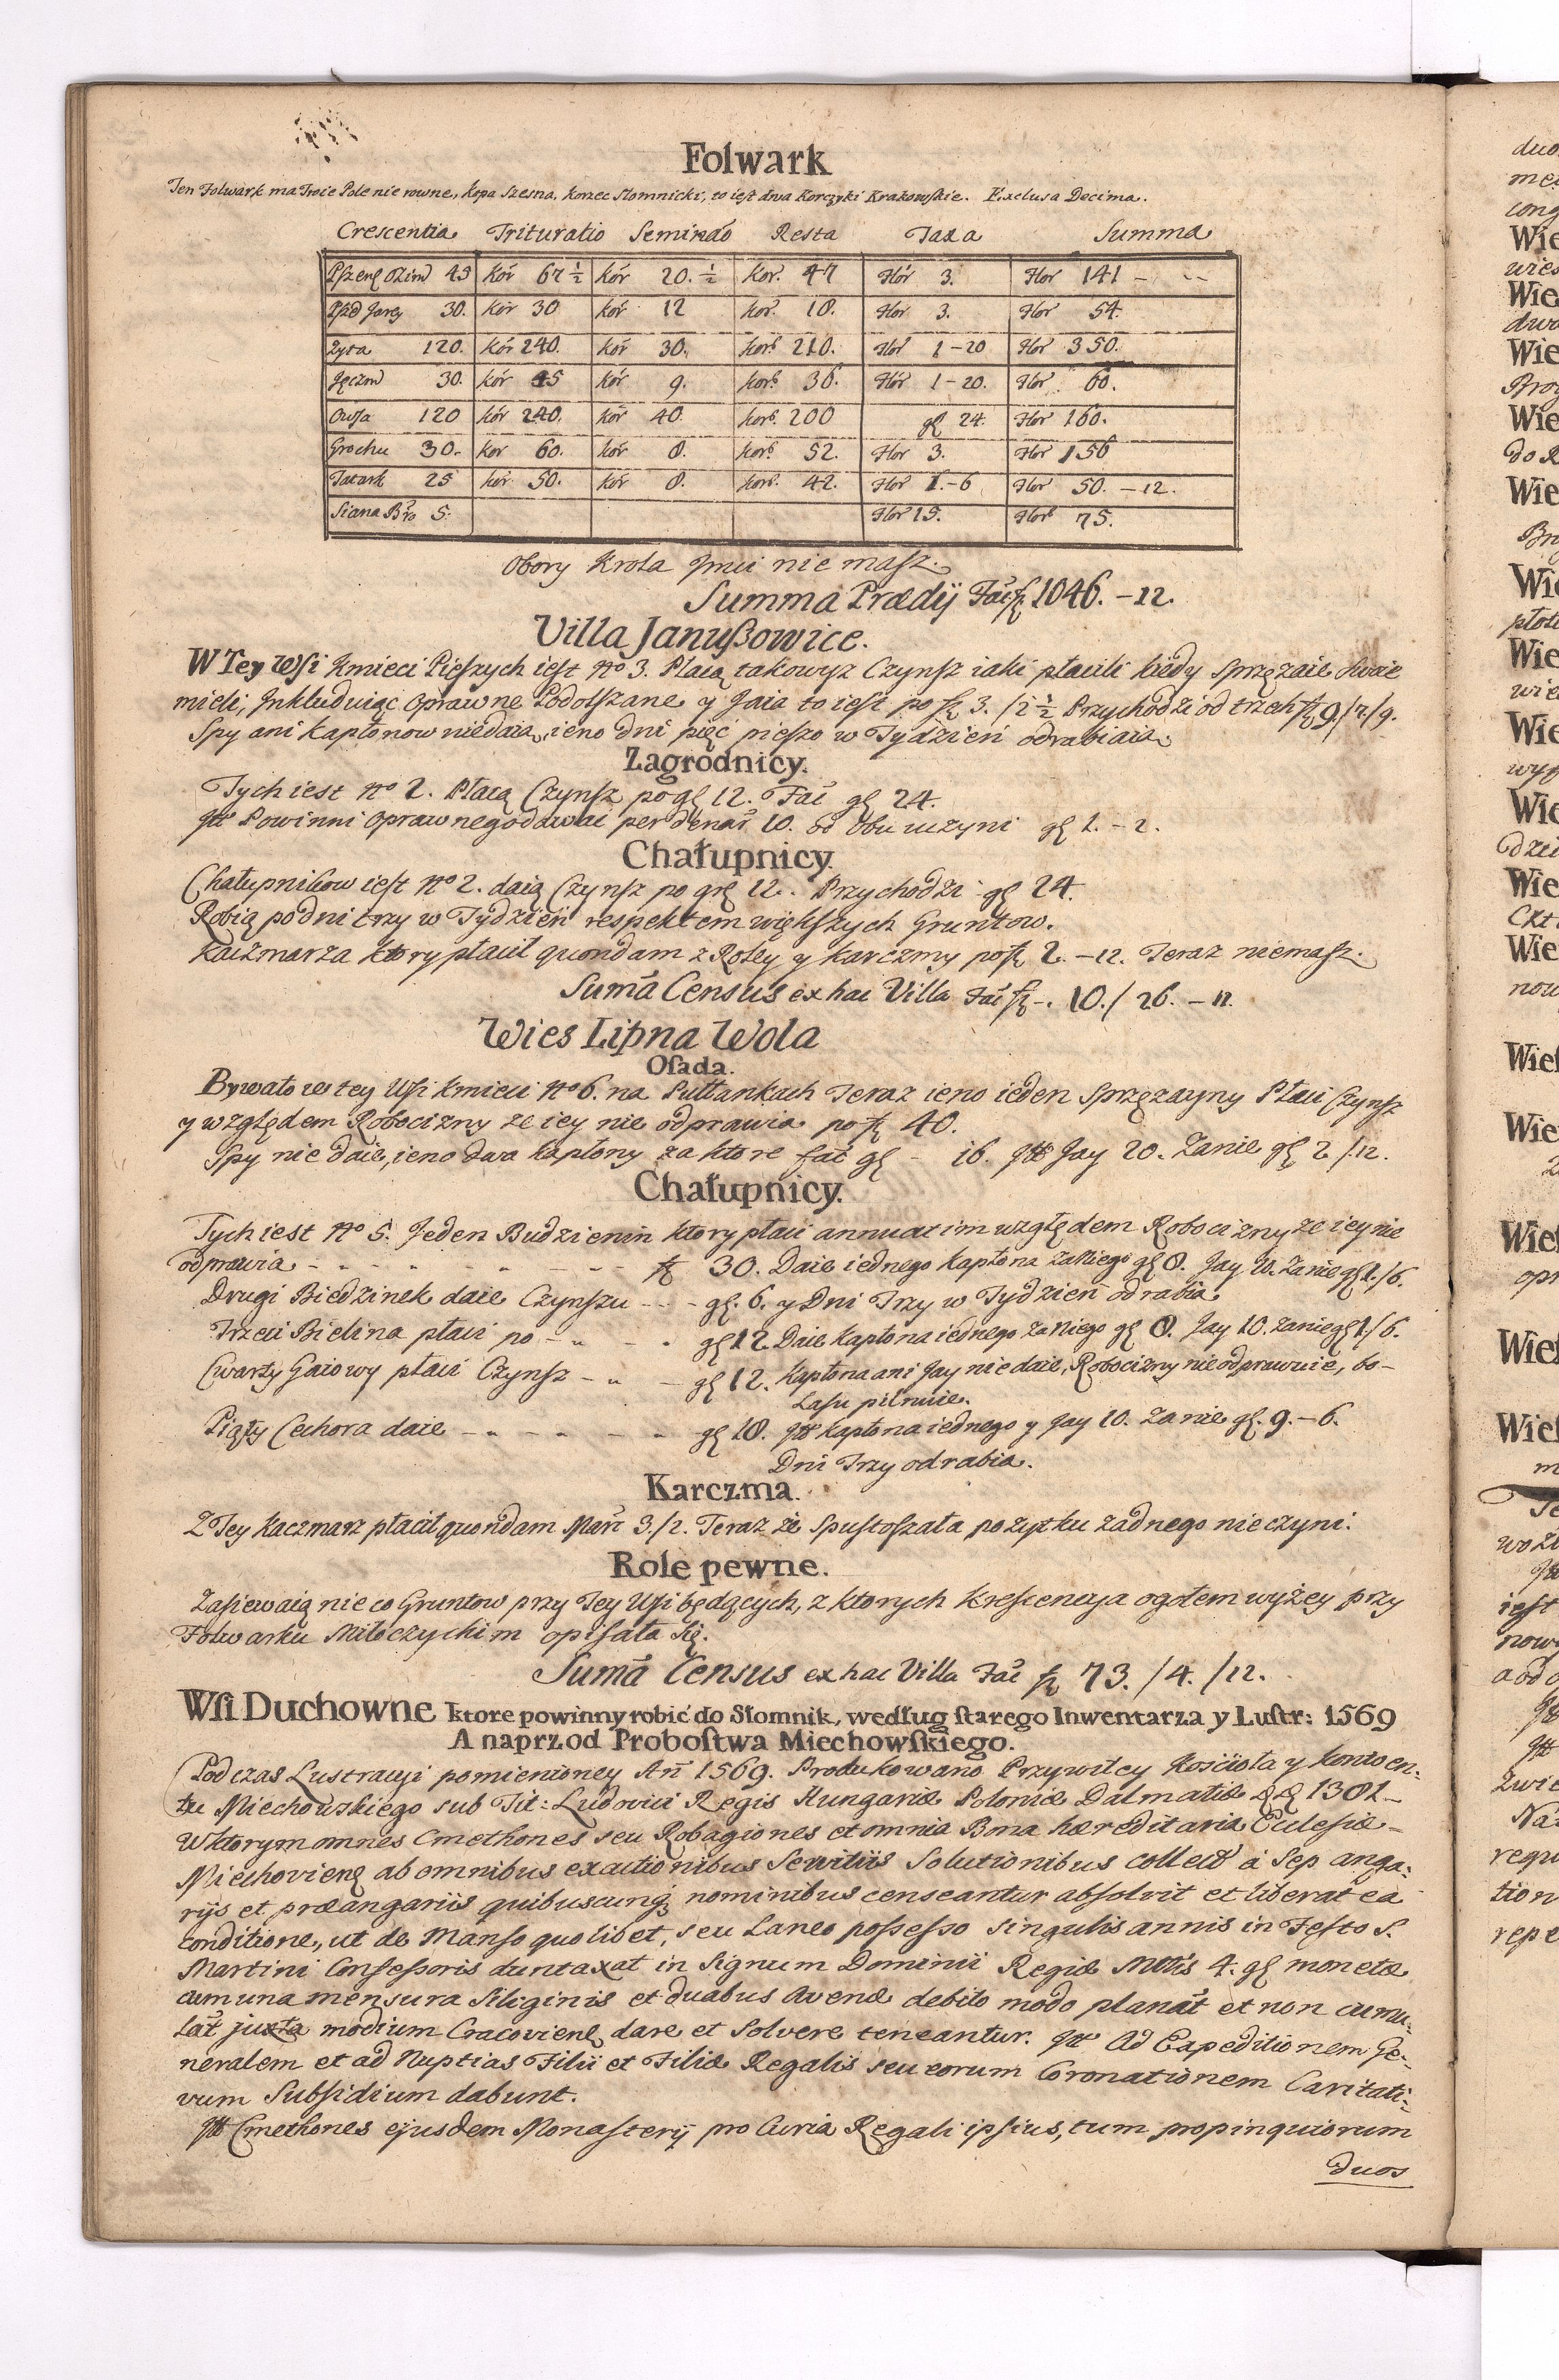 Folwark
Ten Folwark ma Troie Pole nie rowne, Kopa Szesna, Korzec Słomnicki, to iest dwa Korczyki Krakowskie. Exclusa Decima.
Crescentia Trituratio Semina͠o Resta Taxa Summa
Pszenę Ozim 45 Kór 67 ½ Kór 20. ½ Kor. 47 Flór 3. Flor 141 -
Jarey 30. Kór 30 Kór 12 Kor. 18. Flor 3. Flor 54.
Zyta 120. Kór 240. Kór 30. Korb 210. Flór 1-20 Flór 350.
Jęczm 30. Kór 45 Kór 9. Korb 36. Flór 1-20. Flor. 60.
Owsa 120 Kór 240. Kór 40. Korb. 200 gę 24. Flór 160.
Grochu 30. Kor 60. Kór 8. Korb 52. Flor 3. Flór 156
Tatark 25 Kór 50. Kór 8. Korb. 42. Flór 1.-6 Flor 50. -12.
Siana Bro 5. Flór 15. Flor 75.
Obory Krola Jmci nie masz.
Summa Prædij Fać fl 1046. -12.
Villa Janußowice.
W Tey Wsi Kmieci Pieszych iest No 3. Płacą takowyz Czynsz iaki płacili kiedy Sprzęzaie swoie
mieli, Inkluduiąc Oprawne Podolszane y Jaia to iest po fl 3. /2 ½ Przychodzi od trzech fl 9./7./9.
Spy ani kapłonow niedaią, ieno dni pięć pieszo w Tydzień odrabiaią.
Zagrodnicy.
Tych iest No 2. Płacą Czynsz po gę 12. Fać gę 24.
Itt Powinni Oprawnego dawać per denar 10. od Obu uczyni gę 1. -2.
Chałupnicy.
Chałupnikow iest No 2. daią Czynsz po grę 12. Przychodzi gę 24.
Robią po dni trzy w Tydzień respektem większych Gruntow.
Kaczmarza ktory płacił quondam z Roley y Karczmy po fl 2. -12. Teraz niemasz.
Sumā Census ex hac Villa Fać fl -. 10./ 26. - 11.
Wies Lipna Wola
Osada.
Bywało w tey Wsi Kmieci No 6. na Pułłankach Teraz ieno ieden Sprzęzayny Płaci Czynsz
y względem Robocizny ze iey nie odprawia po fl 40.
Spy nie daie, ieno dwa kapłony za ktore fać gę - 16. Itt Jay 20. Zanie gę 2 /.12.
Chałupnicy.
Tych iest No 5. Jeden Budzienin ktory płaci annuatim względem Robocizny ze iey nie
odprawia - - - - - - fl 30. Daie iednego kapłona za niego gę 8. Jay 10. Zanie gę 1./6.
Drugi Biedzinek daie Czynszu - - - gę. 6. y Dni Trzy w Tydzień odrabia.
Trzeci Bielina płaci po - - - gę 12. Daie kapłona iednego za niego gę 8. Jay 10. zanie gę 1./6.
Cwarty Gaiowy płaci Czynsz - - - gę 12. Kapłona ani Jay nie daie, Robocizny nie odprawuie, bo-
Lasu pilnuie.
Piąty Cechora daie - - - - - gę 18. Itt kapłona iednego y Jay 10. Za nie gę. 9.-6.
Dni Trzy odrabia.
Karczma.
Z Tey Kaczmarz płacił quondam Marc 3./2. Teraz że Spustoszała pożytku żadnego nie czyni.
Role pewne.
Zasiewaią nieco Gruntow przy Tey Wsi będących, z ktorych Krescencya ogołem wyżey przy
Folwarku Miłoczyckim opisała się.
Sumā Census ex hac Villa Fać fl 73./4./12.
Wsi Duchowne ktore powinny robić do Słomnik, według starego Inwentarza y Lustr: 1569
A naprzod Probostwa Miechowskiego.
Podczas Lustracyi pomienioney Añ 1569. Produkowano Przywiley Kościoła y Konwen-
tu Miechowskiego sub Tit: Ludovici Regis Hungariæ Poloniæ Dalmatiæ 1381-
W ktorym omnes Cmethones seu Robagiones et omnia Bona hæreditaria Ecclesiæ-
Miechovienę ab omnibus exactionibus Servitiis Solutionibus collect a Sep anga:
rijs et præangariis quibuscunq; nominibus censeantur absolvit et liberat ea
conditione, ut de Manso quolibet, seu Laneo possesso singulis annis in Festo S.
Martini Confessoris duntaxat in Signum Dominii Regiæ Mttis 4. gę monetæ
cum una mensura Siliginis et duabus Avenæ debito modo planat et non cumu:
lat juxta modium Cracovienę dare et Solvere teneantur. Itt Ad Expeditionem Ge:
neralem et ad Nuptias Filii et Filiæ Regalis seu eorum Coronationem Caritati:
vum Subsidium dabunt.
Itt Cmethones ejusdem Monasterij pro Curia Regali ipsius, tum propinquiorum
duos